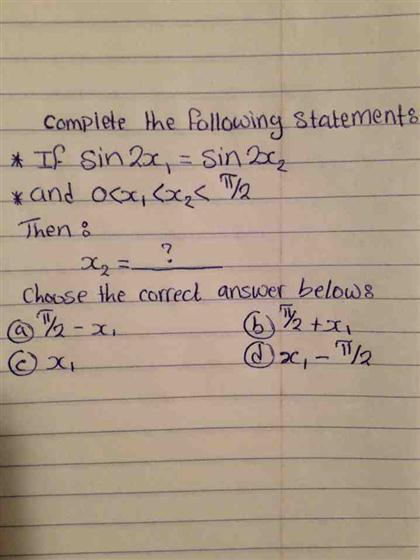 Complete the following statements
* If sin2x₁ = sin2x₂
* and 0<x₁<x₂< π/2
Then :
x₂ = ?
Choose the correct answer below:
ⓐ π/2 - x₁ ⓑ π/2 + x₁
ⓒ x₁ ⓓ x₁ - π/2